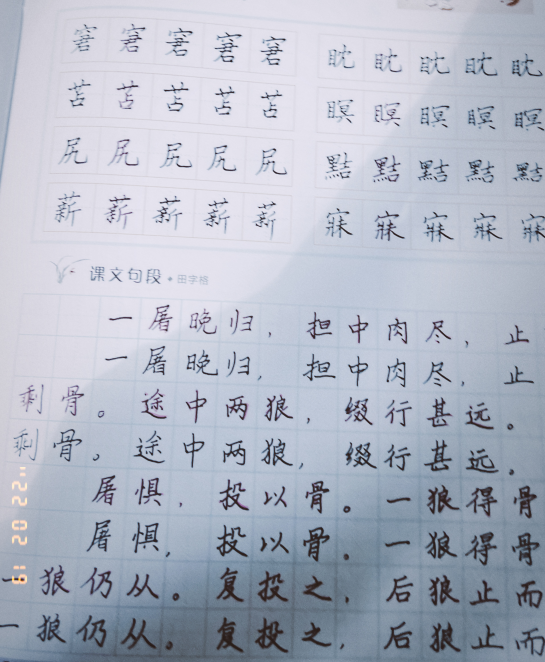 窘 窘 窘 窘 窘 眈 眈 眈 眈 眈
苫 苫 苫 苫 苫 瞑 瞑 瞑 瞑 瞑
尻 尻 尻 尻 尻 黠 黠 黠 黠 黠
薪 薪 薪 薪 薪 寐 寐 寐 寐 寐
课文句段 • 田字格
一屠晚归，担中肉尽，止
一屠晚归，担中肉尽，止
剩骨。途中两狼，缀行甚远。
剩骨。途中两狼，缀行甚远。
屠惧，投以骨。一狼得骨
屠惧，投以骨。一狼得骨
一狼仍从。复投之，后狼止而
一狼仍从。复投之，后狼止而